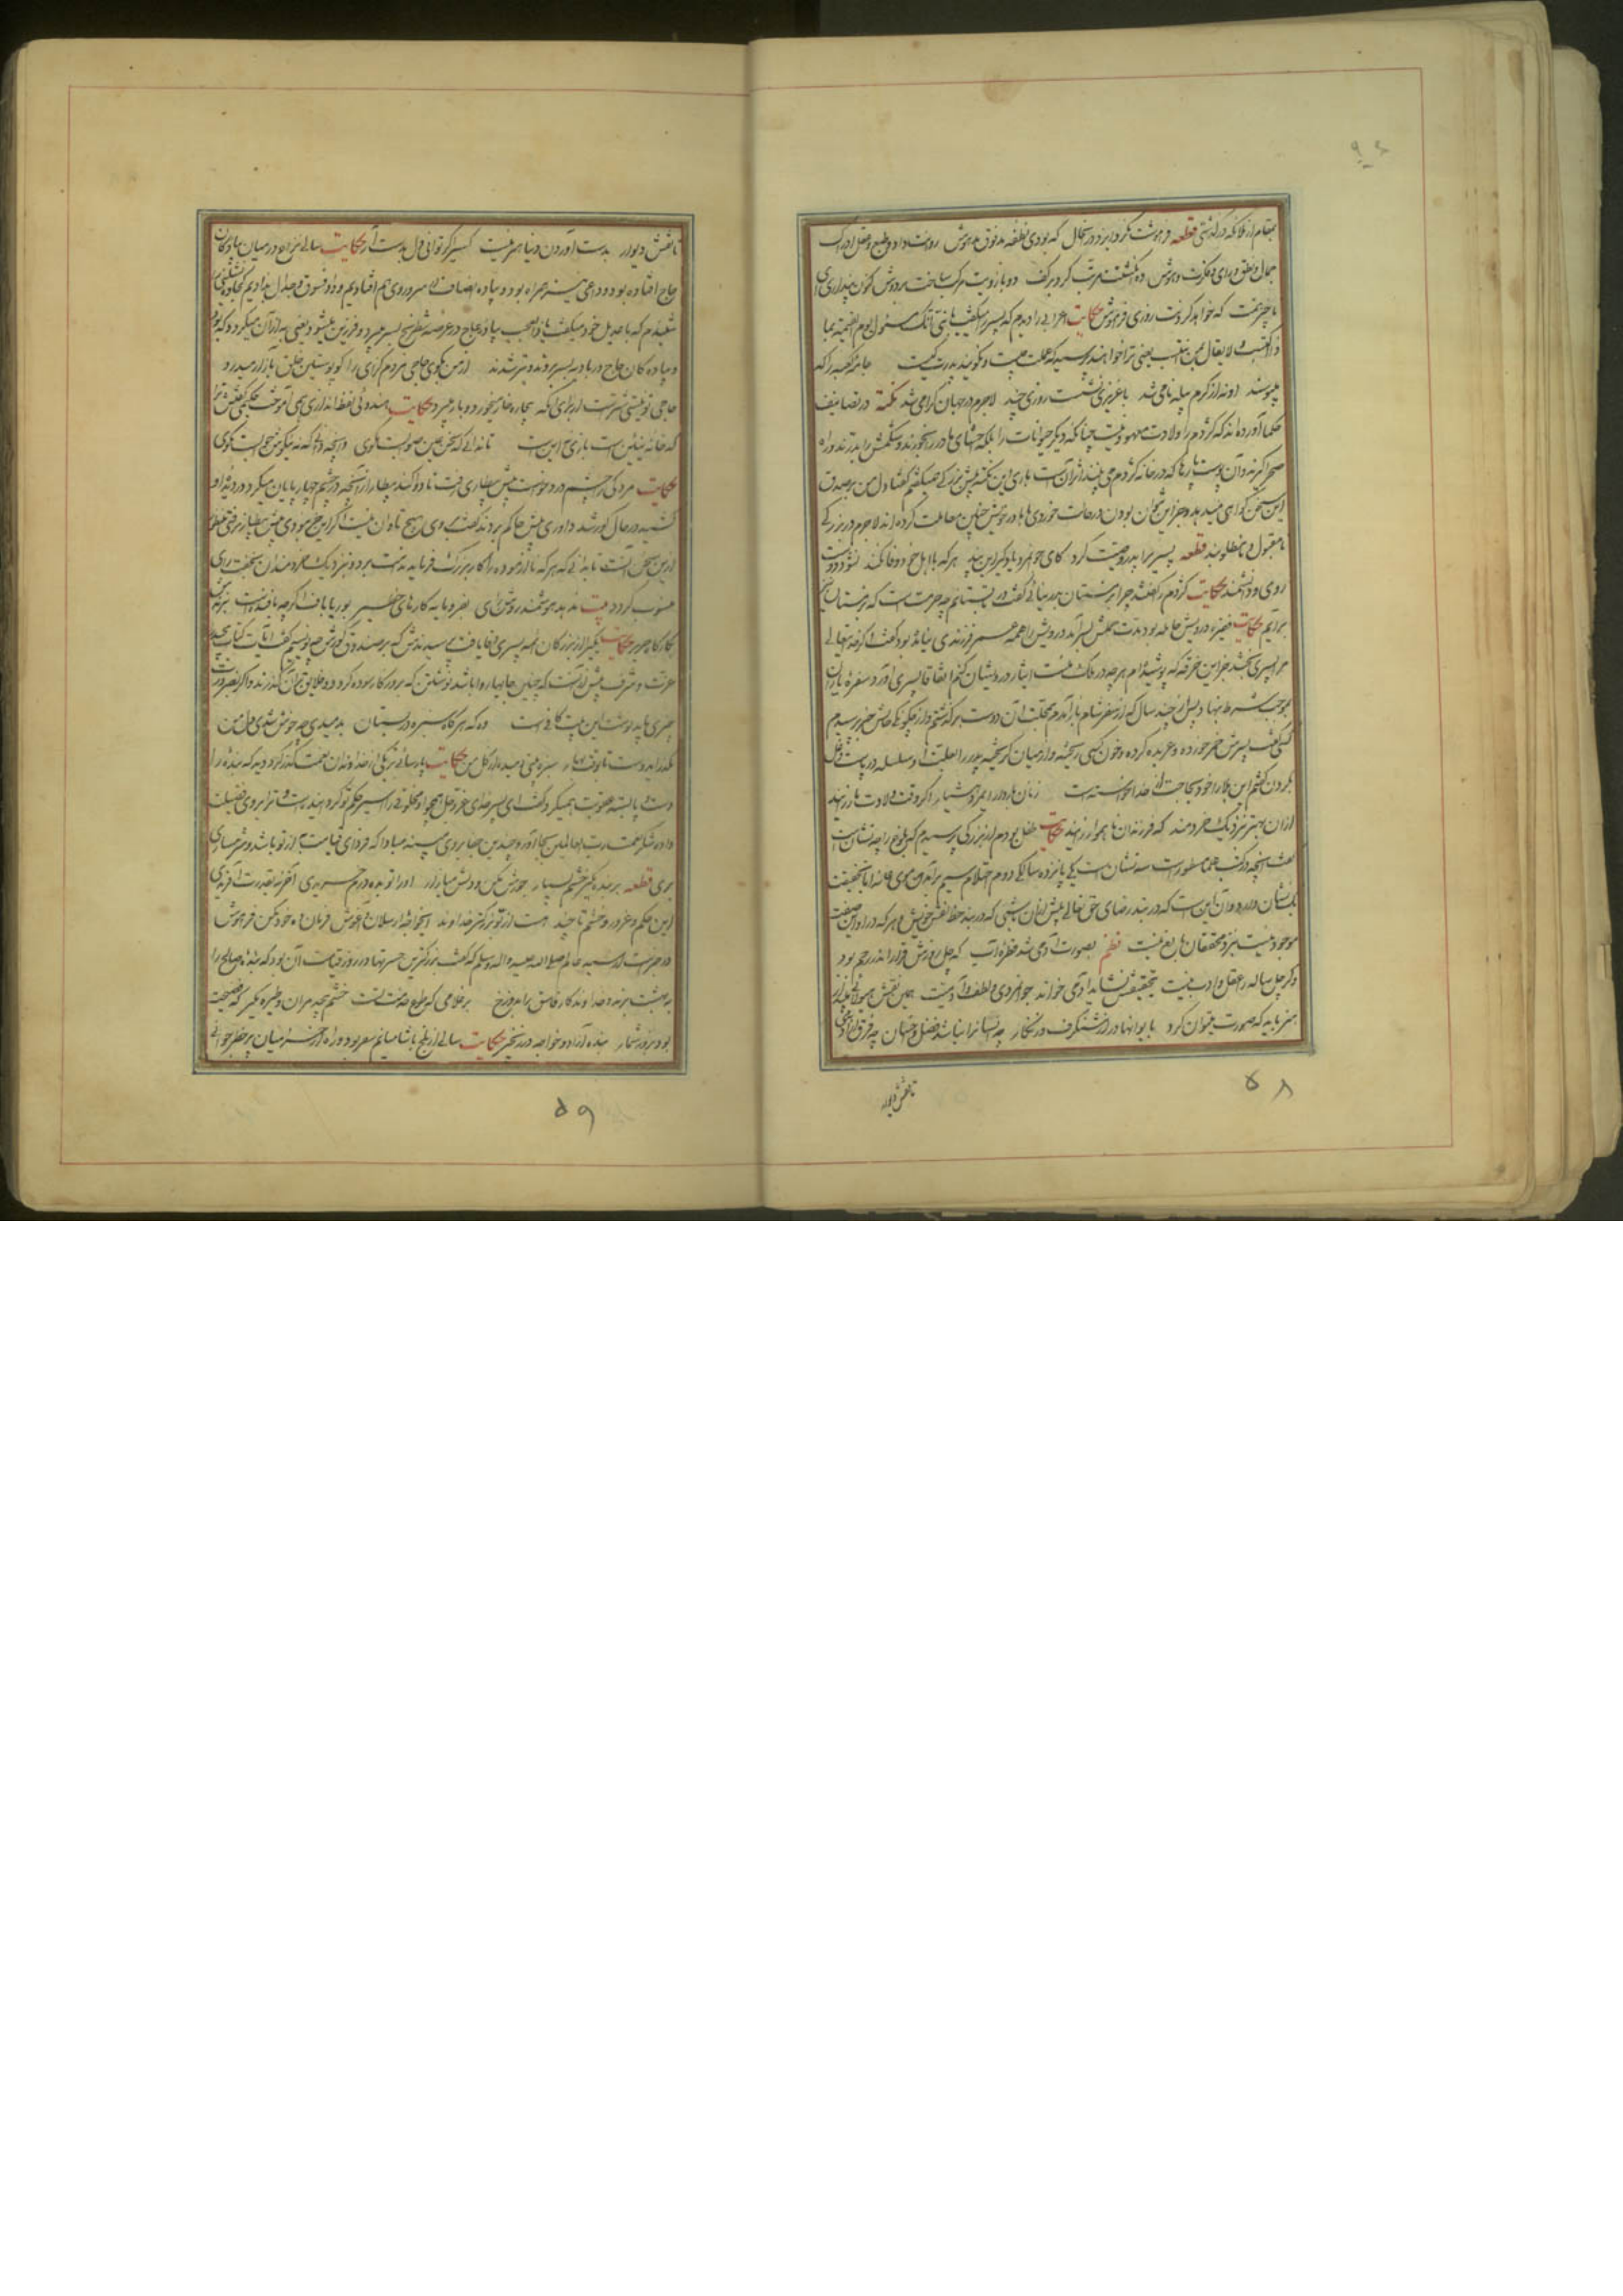 ۹۴
بمقام از ملائکه درگذشتی قطعه فراموشت نکرد ایزد در آنحال که بودی نطفه مدفوق مدهوش روانت داد و طبع و عقل و ادراک
جمال و نطق و رای و فکرت و هوش ده انگشتت مرتب کرد بر کف دو بازویت مرکب ساخت بر دوش کنون پنداری ای
ناچیز همت که خواهد کردنت روزی فراموش حکایت اعرابی را دیدم که پسر را میگفت یا بنی انک مسئول یوم القیمة بما
ذا اکتسبت و لا یقال بمن انتسبت یعنی ترا خواهند پرسید که عملت چیست و نگویند پدرت کیست جامه کعبه را که
میبوسند او نه از کرم پیله نامی شد با عزیزی نشست روزی چند لاجرم در جهان گرامی شد نکته در تصانیف
حکما آورده اند که کژدم را ولادت معهود نیست چنانکه دیگر حیوانات را بلکه احشای مادر را بخورند و شکمش را بدرند و راه
صحرا گیرند و آن پوست پارها که در خانه کژدم می بینند اثر آن است باری این نکته پیش بزرگی همیگفتم گفتا دل من بر صدق
این سخن گواهی میدهد و جز این نتوان بودن در حالت خوردی با مادر خویش چنین معاملت کرده اند لاجرم در بزرگی
نامقبول و نامطلوبند قطعه پسری را پدر وصیت کرد کای جوانمرد یاد گیر این پند هر که با اهل خود وفا نکند نشود دوست
روی و دانشمند حکایت کژدم را گفتند چرا بزمستان بدر نیائی گفت در تابستانم چه حرمت است که زمستان نیز
برآیم حکایت فقیره درویش حامله بود مدت حملش بسر آمد درویش را همه عمر فرزندی نیامده بود گفت اگر خدایتعالی
مرا پسری بخشد جز این خرقه که پوشیده ام هر چه در ملک منست ایثار درویشان کنم اتفاقا پسری آورد سفره یاران
بموجب شرط بنهاد پس از چند سال که از سفر شام باز آمدم بمحلت آن دوست برگذشتم و از چگونگی حالش خبر پرسیدم
کسی گفت پسرش خمر خورده و عربده کرده و خون کسی ریخته و از میان گریخته پدر را بعلت او سلسله در پاست و غل
بر گردن گفتم این بلا را خود بحاجت از خدا خواسته است زنان باردار ای مرد هشیار اگر وقت ولادت مار زایند
از آن بهتر بنزدیک خردمند که فرزندان ناهموار زایند حکایت طفل بودم از بزرگی پرسیدم که بلوغ را چه نشانست
گفت آنچه در کتب ما مسطور است سه نشان است یکی پانزده سالگی دوم احتلام سیم برآمدن موی عانه اما بحقیقت
یک نشان دارد و آن این است که در بند رضای حق تعالی بیش از آن باشی که در بند حظ نفس خویش و هر که در او این صفت
موجود نیست نزد محققان بالغ نیست نظم بصورت آدمی شد قطره آب که چل روزش قرار اندر رحم بود
وگر چل ساله را عقل و ادب نیست بتحقیقش نشاید آدمی خواند جوانمردی و لطفست آدمیت همین نقش هیولائی مپندار
هنر باید که صورت میتوان کرد با یوانها در از شنگرف و زنگار چو انسانرا نباشد فضل و احسان چه فرق از آدمی
تا نقش دیوار
۵۸
تا نقش دیوار بدست آوردن دنیا هنر نیست کسی را گر توانی دل بدست آر حکایت سالی نزاع در میان پیادگان
حاج افتاده بود و داعی نیز همراه بود و پیاده انصاف در سر و روی هم افتادیم و داد فسوق و جدال بدادیم کجاوه نشینی را
شنیدم که با عدیل خود میگفت یا للعجب پیاده عاج در عرصه شطرنج بسر میبرد و فرزین میشود یعنی به از آن میگردد که بود
و پیادگان حاج در بادیه بسر بردند و بتر شدند از من بگوی حاجی مردم گزای را کو پوستین خلق بآزار میدرد
حاجی تو نیستی شترست از برای آنکه بیچاره خار میخورد و بار میبرد حکایت هندوئی نفط اندازی همی آموخت حکیمی گفتش ترا
که خانه نیین است بازی نه این است تا ندانی که سخن عین صوابست مگوی و آنچه دانی که نه نیکوش جوابست مگوی
حکایت مردکی را چشم درد خواست پیش بیطاری رفت تا دوا کند بیطار از آنچه در چشم چهار پایان میکرد در دیده او
کشید در حال کور شد داوری پیش حاکم بردند گفت بر وی هیچ تاوان نیست اگر این خر نبودی پیش بیطار نرفتی مقصود
ازین سخن آنست تا بدانی که هر که نا آزموده را کار بزرگ فرماید ندامت برد و بنزدیک خردمندان بخفت رای
منسوب گردد بیت ندهد هوشمند روشن رای بفرومایه کارهای خطیر بوریا باف اگر چه بافنده است نبرندش
بکارگاه حریر حکایت یکی را از بزرگان ائمه پسری وفات یافت پرسیدندش که بر صندوق گورش چه نویسیم گفت آیات کتاب مجید را
عزت و شرف بیش از آنست که چنین جایها روا باشد نوشتن که بروزگار سوده گردد و خلایق بر آن گذرند و اگر بضرورت
چیزی باید نوشت این بیت کافیست وه که هر گه که سبزه در بستان بدمیدی چه خوش شدی دل من
بگذر ای دوست تا بوقت بهار سبزه بینی دمیده از گل من حکایت پارسائی بر یکی از خداوندان نعمت گذر کرد دید که بنده را
دست و پا بسته عقوبت همیکرد گفت ای پسر خدای عز و جل همچو تو مخلوقی را اسیر حکم تو گردانیده است و ترا بر وی فضیلت
داده شکر نعمت رب العالمین بجا آور و چندین جفا بر وی مپسند مبادا که فردای قیامت به از تو باشد و شرمساری
بری قطعه بر بنده مگیر خشم بسیار جورش مکن و دلش میازار او را تو بده درم خریدی آخر نه بقدرت آفریدی
این حکم و غرور و خشم تا چند هست از تو بزرگتر خداوند ای خواجه ارسلان و آغوش فرمان ده خود مکن فراموش
در خبر است از سید عالم صلی الله علیه و اله و سلم که گفت بزرگترین حسرتها در روز قیامت آن بود که بنده صالح را
به بهشت برند و خداوندگار فاسق را بدوزخ بر غلامی که طوع خدمت تست خشم بیحد مران و طیره مگیر که فضیحت
بود بروز شمار بنده آزاد و خواجه در زنجیر حکایت سالی از بلخ بامیانم سفر بود و راه از حرامیان پر خطر جوانی
۵۹